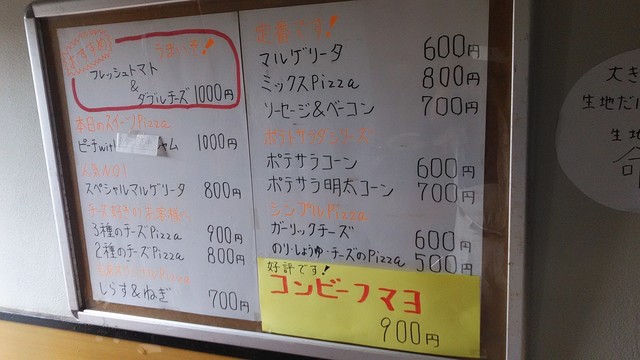 おすすめ
うまいぞ!
フレッシュトマト
&
ダブルチーズ 1000円
本日のスイーツPizza
ピーチwith ャム 1000円
人気NO1
スペシャルマルゲリータ 800円
チーズ好きのお客様へ
3種のチーズPizza 900円
2種のチーズPizza 800円
しらす&ねぎ 700円
定番です!
マルゲリータ 600円
ミックスPizza 800円
ソーセージ&ベーコン 700円
ポテトサラダシリーズ
ポテサラコーン 600円
ポテサラ明太コーン 700円
シンプルPizza
ガーリックチーズ 600円
のり・しょうゆ・チーズのPizza 500円
好評です!
コンビーフマヨ
900円
大き
生地だけ
生地